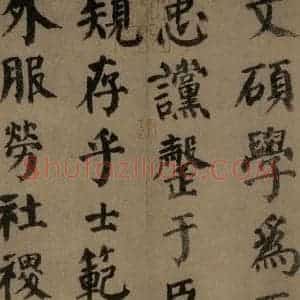 文碩學爲
忠讜罄于臣
規存乎士範
外服勞社稷